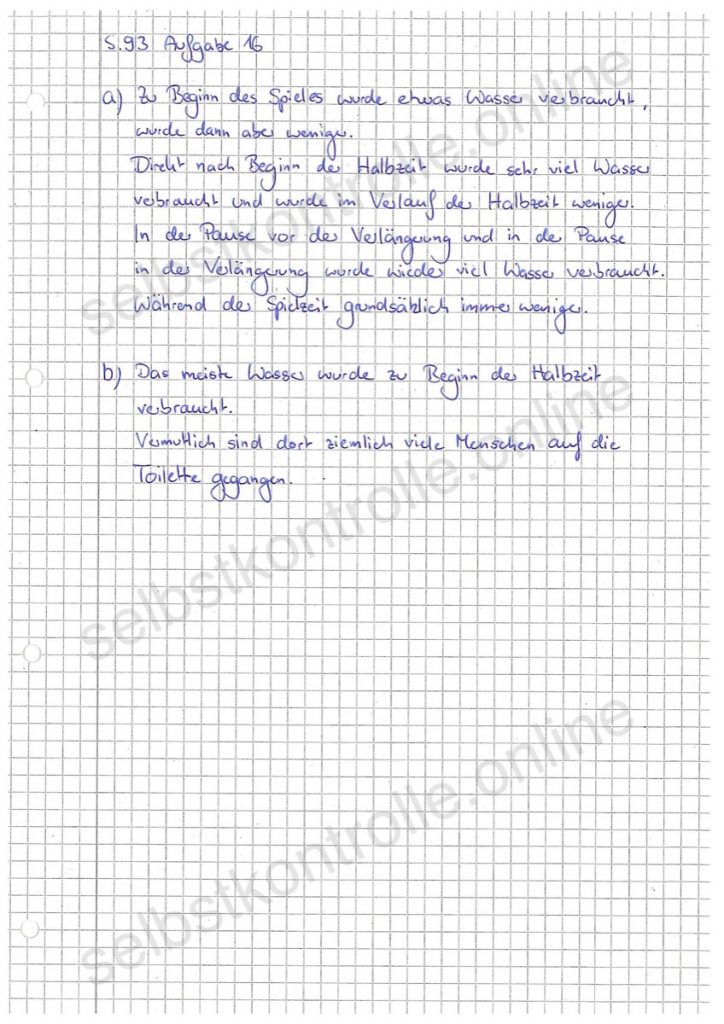 S.93 Aufgabe 16
a) Zu Beginn des Spieles wurde etwas Wasser verbraucht,
wurde dann aber weniger.
Direkt nach Beginn der Halbzeit wurde sehr viel Wasser
verbraucht und wurde im Verlauf der Halbzeit weniger.
In der Pause vor der Verlängerung und in der Pause
in der Verlängerung wurde wieder viel Wasser verbraucht.
Während der Spielzeit grundsätzlich immer weniger.
b) Das meiste Wasser wurde zu Beginn der Halbzeit
verbraucht.
Vermutlich sind dort ziemlich viele Menschen auf die
Toilette gegangen.
selbstkontrolle.online
selbstkontrolle.online
selbstkontrolle.online